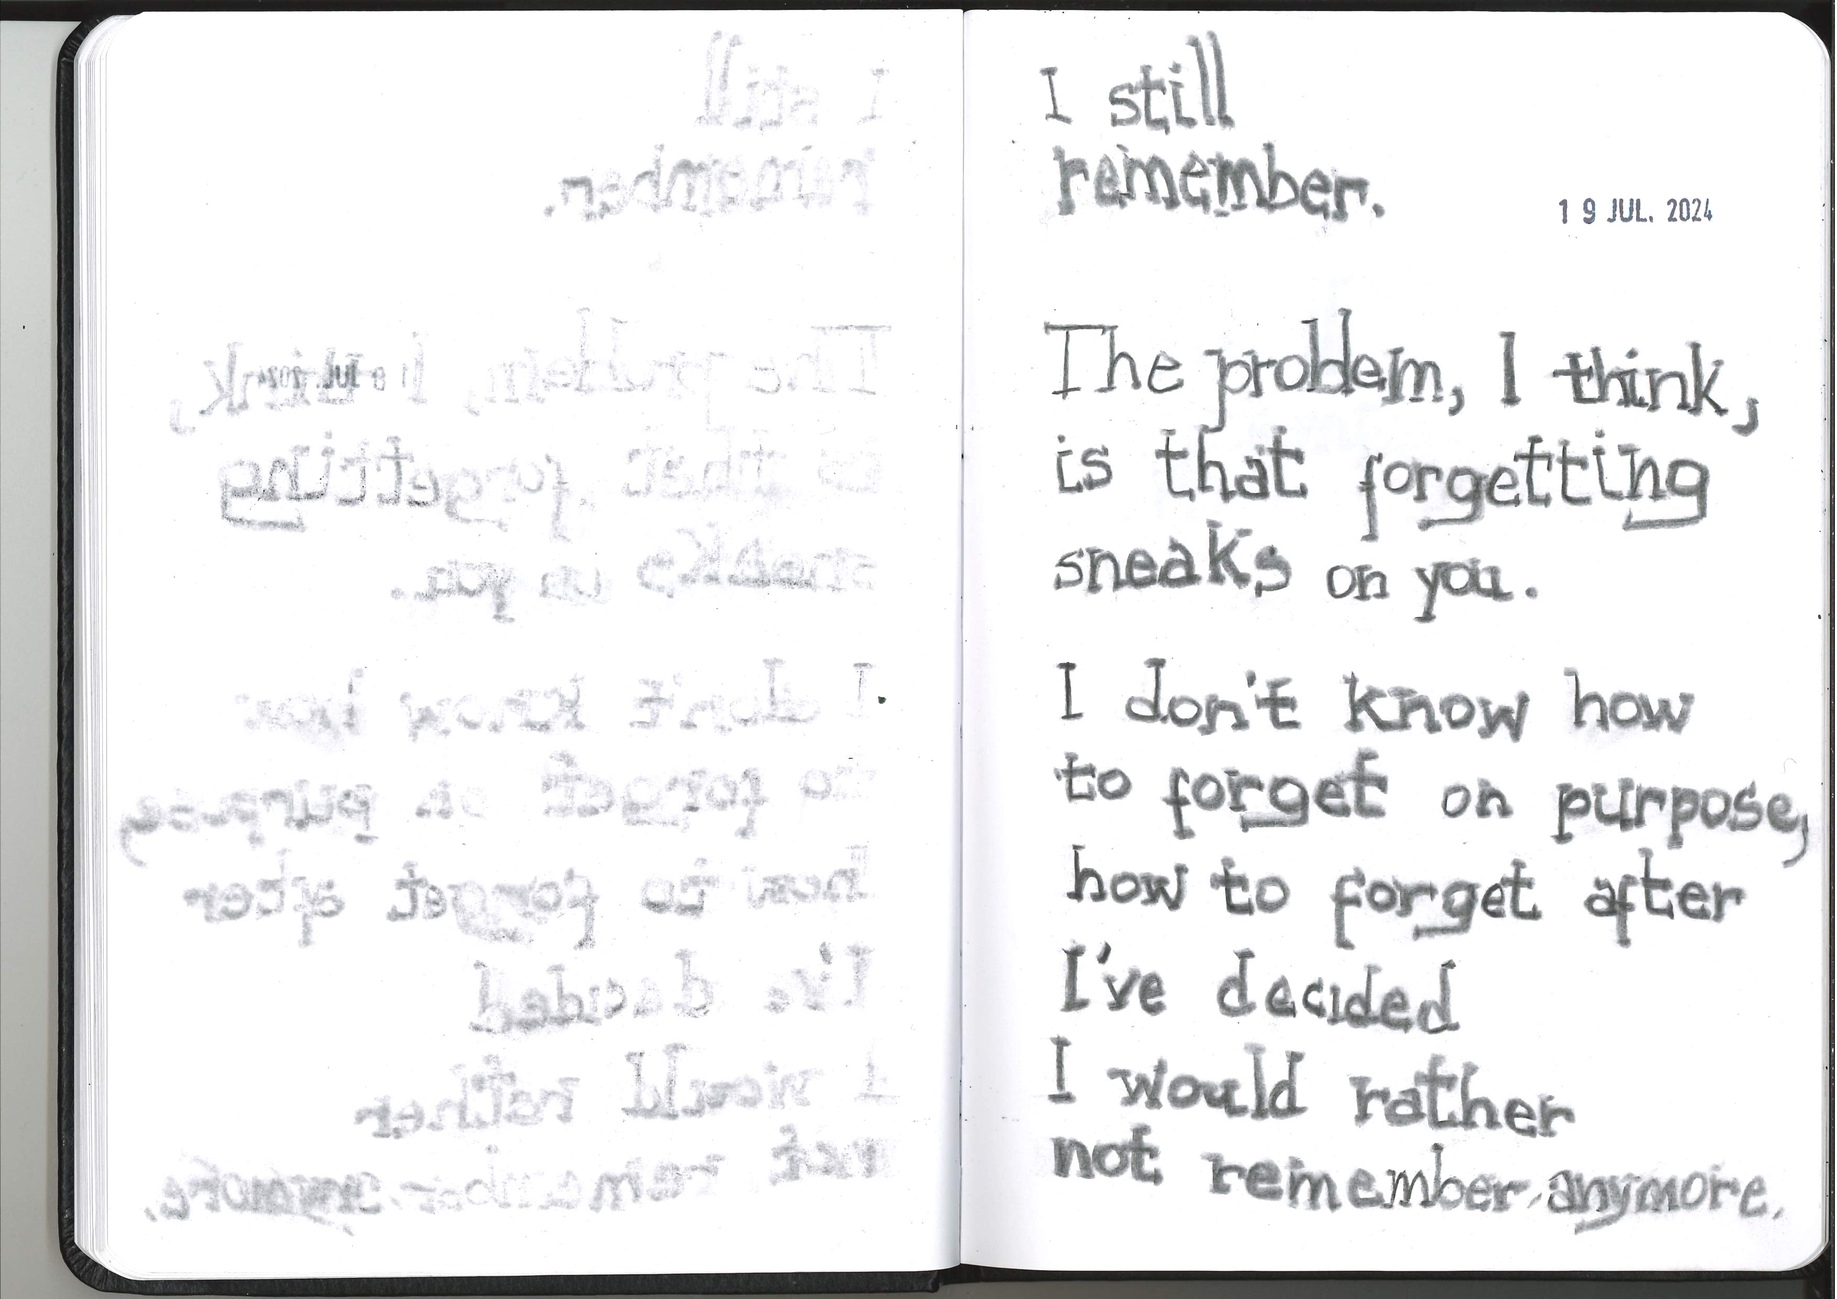 I still
remember.
19 JUL. 2024
The problem, I think,
is that forgetting
sneaks on you.
I don't know how
to forget on purpose,
how to forget after
I've decided
I would rather
not remember anymore.